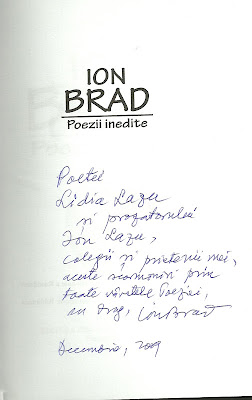 ION
BRAD
Poezii inedite
Poetei
Lidia Lazu
și prozatorului
Ion Lazu,
colegii și prietenii mei,
aceste prin
toate vârstele Poeziei,
cu drag, Ion Brad
Decembrie, 2009